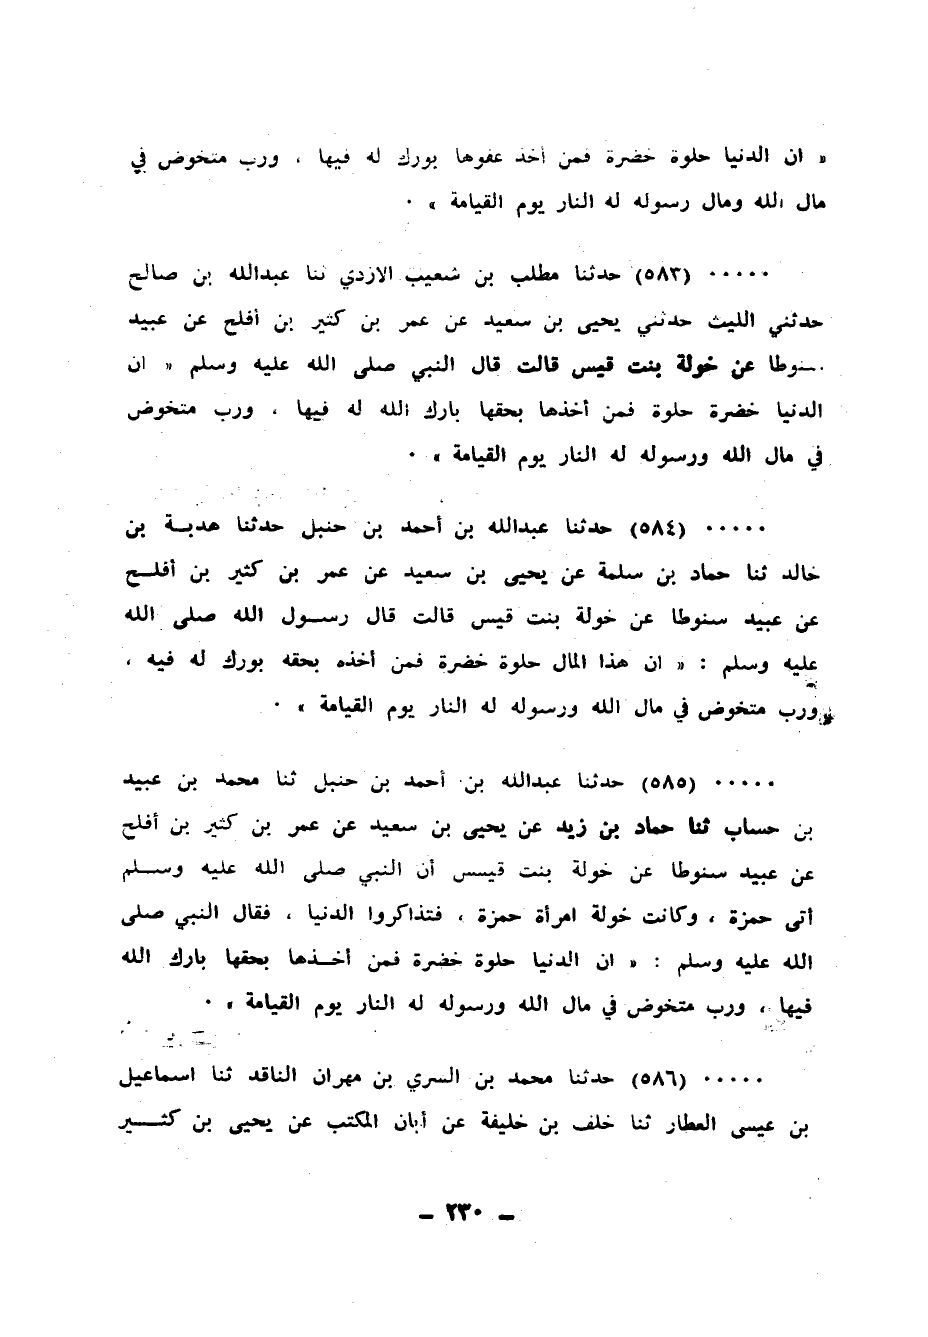 « ان الدنيا حلوة خضرة فمن أخذ عفوها بورك له فيها ، ورب متخوض في
مال الله ومال رسوله له النار يوم القيامة » ٠
٠٠٠٠٠ (٥٨٣) حدثنا مطلب بن شعيب الازدي ثنا عبدالله بن صالح
حدثني الليث حدثني يحيى بن سعيد عن عمر بن كثير بن أفلح عن عبيد
سنوطا عن خولة بنت قيس قالت قال النبي صلى الله عليه وسلم « ان
الدنيا خضرة حلوة فمن أخذها بحقها بارك الله له فيها ، ورب متخوض
في مال الله ورسوله له النار يوم القيامة » ٠
٠٠٠٠٠ (٥٨٤) حدثنا عبدالله بن أحمد بن حنبل حدثنا هدبــة بن
خالد ثنا حماد بن سلمة عن يحيى بن سعيد عن عمر بن كثير بن أفلــح
عن عبيد سنوطا عن خولة بنت قيس قالت قال رســول الله صلى الله
عليه وسلم : « ان هذا المال حلوة خضرة فمن أخذه بحقه بورك له فيه ،
ورب متخوض في مال الله ورسوله له النار يوم القيامة » ٠
٠٠٠٠٠ (٥٨٥) حدثنا عبدالله بن أحمد بن حنبل ثنا محمد بن عبيد
بن حساب ثنا حماد بن زيد عن يحيى بن سعيد عن عمر بن كثير بن أفلح
عن عبيد سنوطا عن خولة بنت قيس أن النبي صلى الله عليه وســلم
أتى حمزة ، وكانت خولة امرأة حمزة ، فتذاكروا الدنيا ، فقال النبي صلى
الله عليه وسلم : « ان الدنيا حلوة خضرة فمن أخــذها بحقها بارك الله
فيها ، ورب متخوض في مال الله ورسوله له النار يوم القيامة » ٠
٠٠٠٠٠ (٥٨٦) حدثنا محمد بن السري بن مهران الناقد ثنا اسماعيل
بن عيسى العطار ثنا خلف بن خليفة عن أبان المكتب عن يحيى بن كثــــير
– ٢٣٠ –